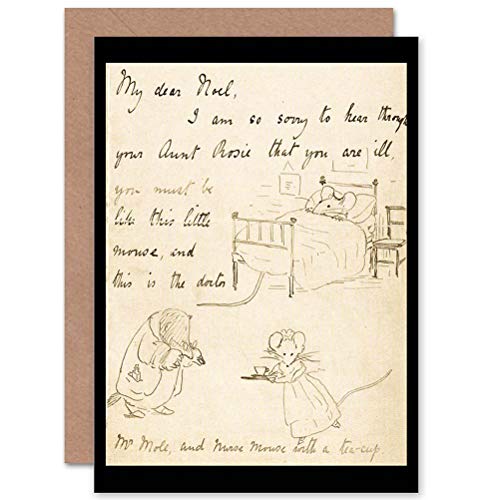 My dear Noel,
I am so sorry to hear through
your Aunt Rosie that you are ill,
you must be
like this little
mouse, and
this is the doctor
Mr Mole, and Nurse Mouse with a tea-cup.